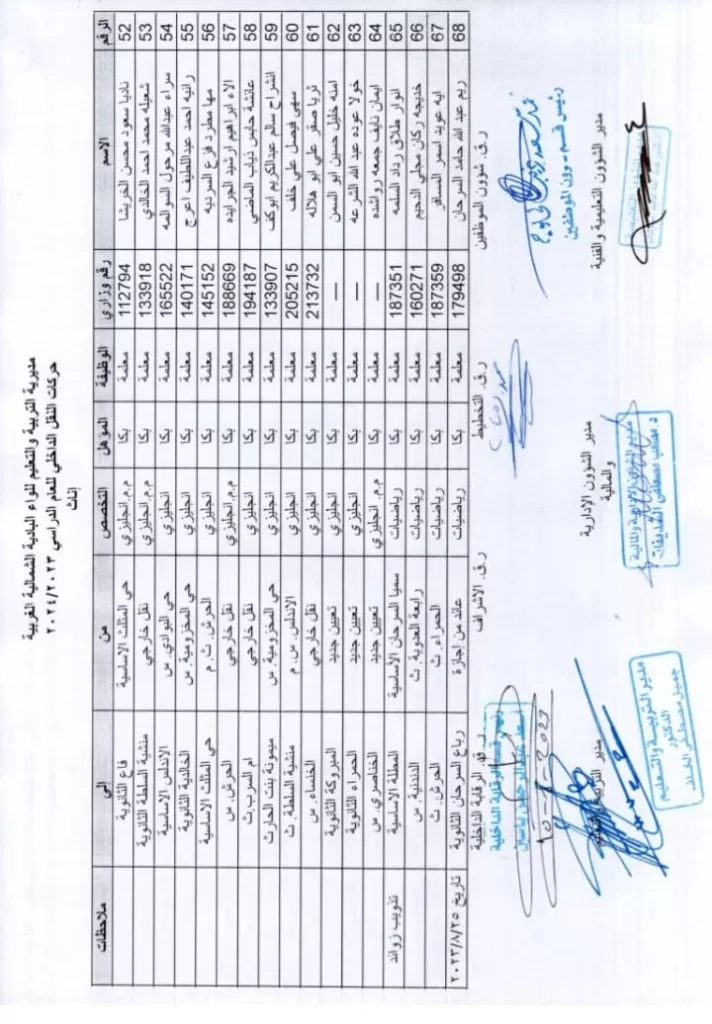 مديرية التربية والتعليم للواء البادية الشمالية الغربية
حركات النقل الداخلي للعام الدراسي ٢٠٢٤/٢٠٢٣
إناث
الرقم الاسم رقم وزاري الوظيفة المؤهل التخصص من الى ملاحظات
52 ناديا سعود محسن الخريشا 112794 معلمة بكا م.م. انجليزي حي المثلث الاساسية فاع الثانوية
53 شعيله محمد احمد الخالدي 133918 معلمة بكا م.م. انجليزي نقل خارجي منشية السلطة الثانوية
54 سراء عبدالله مرحول السوالمه 165522 معلمة بكا انجليزي حي البوادي. س الاندلس الاساسية
55 رانيه احمد عبداللطيف اعرج 140171 معلمة بكا انجليزي حي المخزومية. س الخالدية الثانوية
56 مها مطرد فزع السرديه 145152 معلمة بكا انجليزي الحرش. ث. م حي المثلث الاساسية
57 الاء ابراهيم ارشيد الجرايده 188669 معلمة بكا م.م. انجليزي نقل خارجي الحرش. س
58 عائشة حابس ذياب الماضي 194187 معلمة بكا انجليزي نقل خارجي ام السرب. ث
59 انشراح سالم عبدالكريم ابوكف 133907 معلمة بكا انجليزي حي المخزومية. س ميمونة بنت الحارث
60 سهى فيصل علي خلف 205215 معلمة بكا انجليزي الاندلس. س. م منشية السلطة. ث
61 ثريا صقر علي ابو هلاله 213732 معلمة بكا انجليزي نقل خارجي الخنساء. س
62 امنه خليل حسين ابو السمن — معلمة بكا انجليزي تعيين جديد المبروكة الثانوية
63 خولا عوده عبد الله الشرعه — معلمة بكا انجليزي تعيين جديد الحمراء الثانوية
64 ايمان نايف جمعه رواشده — معلمة بكا م.م. انجليزي تعيين جديد الخناصري. س
65 انوار طلاق رداد السلمه 187351 معلمة بكا رياضيات سميا السرحان الاساسية المطلة الاساسية تذويب زوائد
66 خديجه ركان مجلي الدحيم 160271 معلمة بكا رياضيات رابعة العدوية. ث الدندنية. س
67 ايه عويد اسمر المسافر 187359 معلمة بكا رياضيات الحمراء. ث الحرش. ث
68 ريم عبد الله حامد السرحان 179498 معلمة بكا رياضيات عائد من إجازة رباع السرحان الثانوية تاريخ ٢٠٢٣/٨/٢٥
ر.ق. شؤون الموظفين ر.ق. التخطيط ر.ق. الاشراف ر.ق. الرقابة الداخلية
مدير الشؤون التعليمية والفنية
مدير الشؤون الإدارية
والمالية
مدير التربية
مدير التربية والتعليم
الدكتور